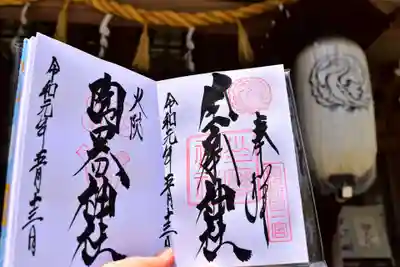 奉拝
坐摩神社
令和元年五月十三日
火防
陶器神社
令和元年五月十三日